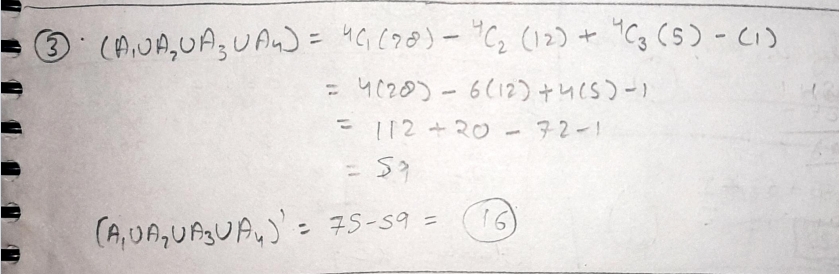 ③ (A₁∪A₂∪A₃∪A₄) = ⁴C₁(28) - ⁴C₂(12) + ⁴C₃(5) - (1)
= 4(28) - 6(12) + 4(5) - 1
= 112 + 20 - 72 - 1
= 59
(A₁∪A₂∪A₃∪A₄)' = 75 - 59 = 16